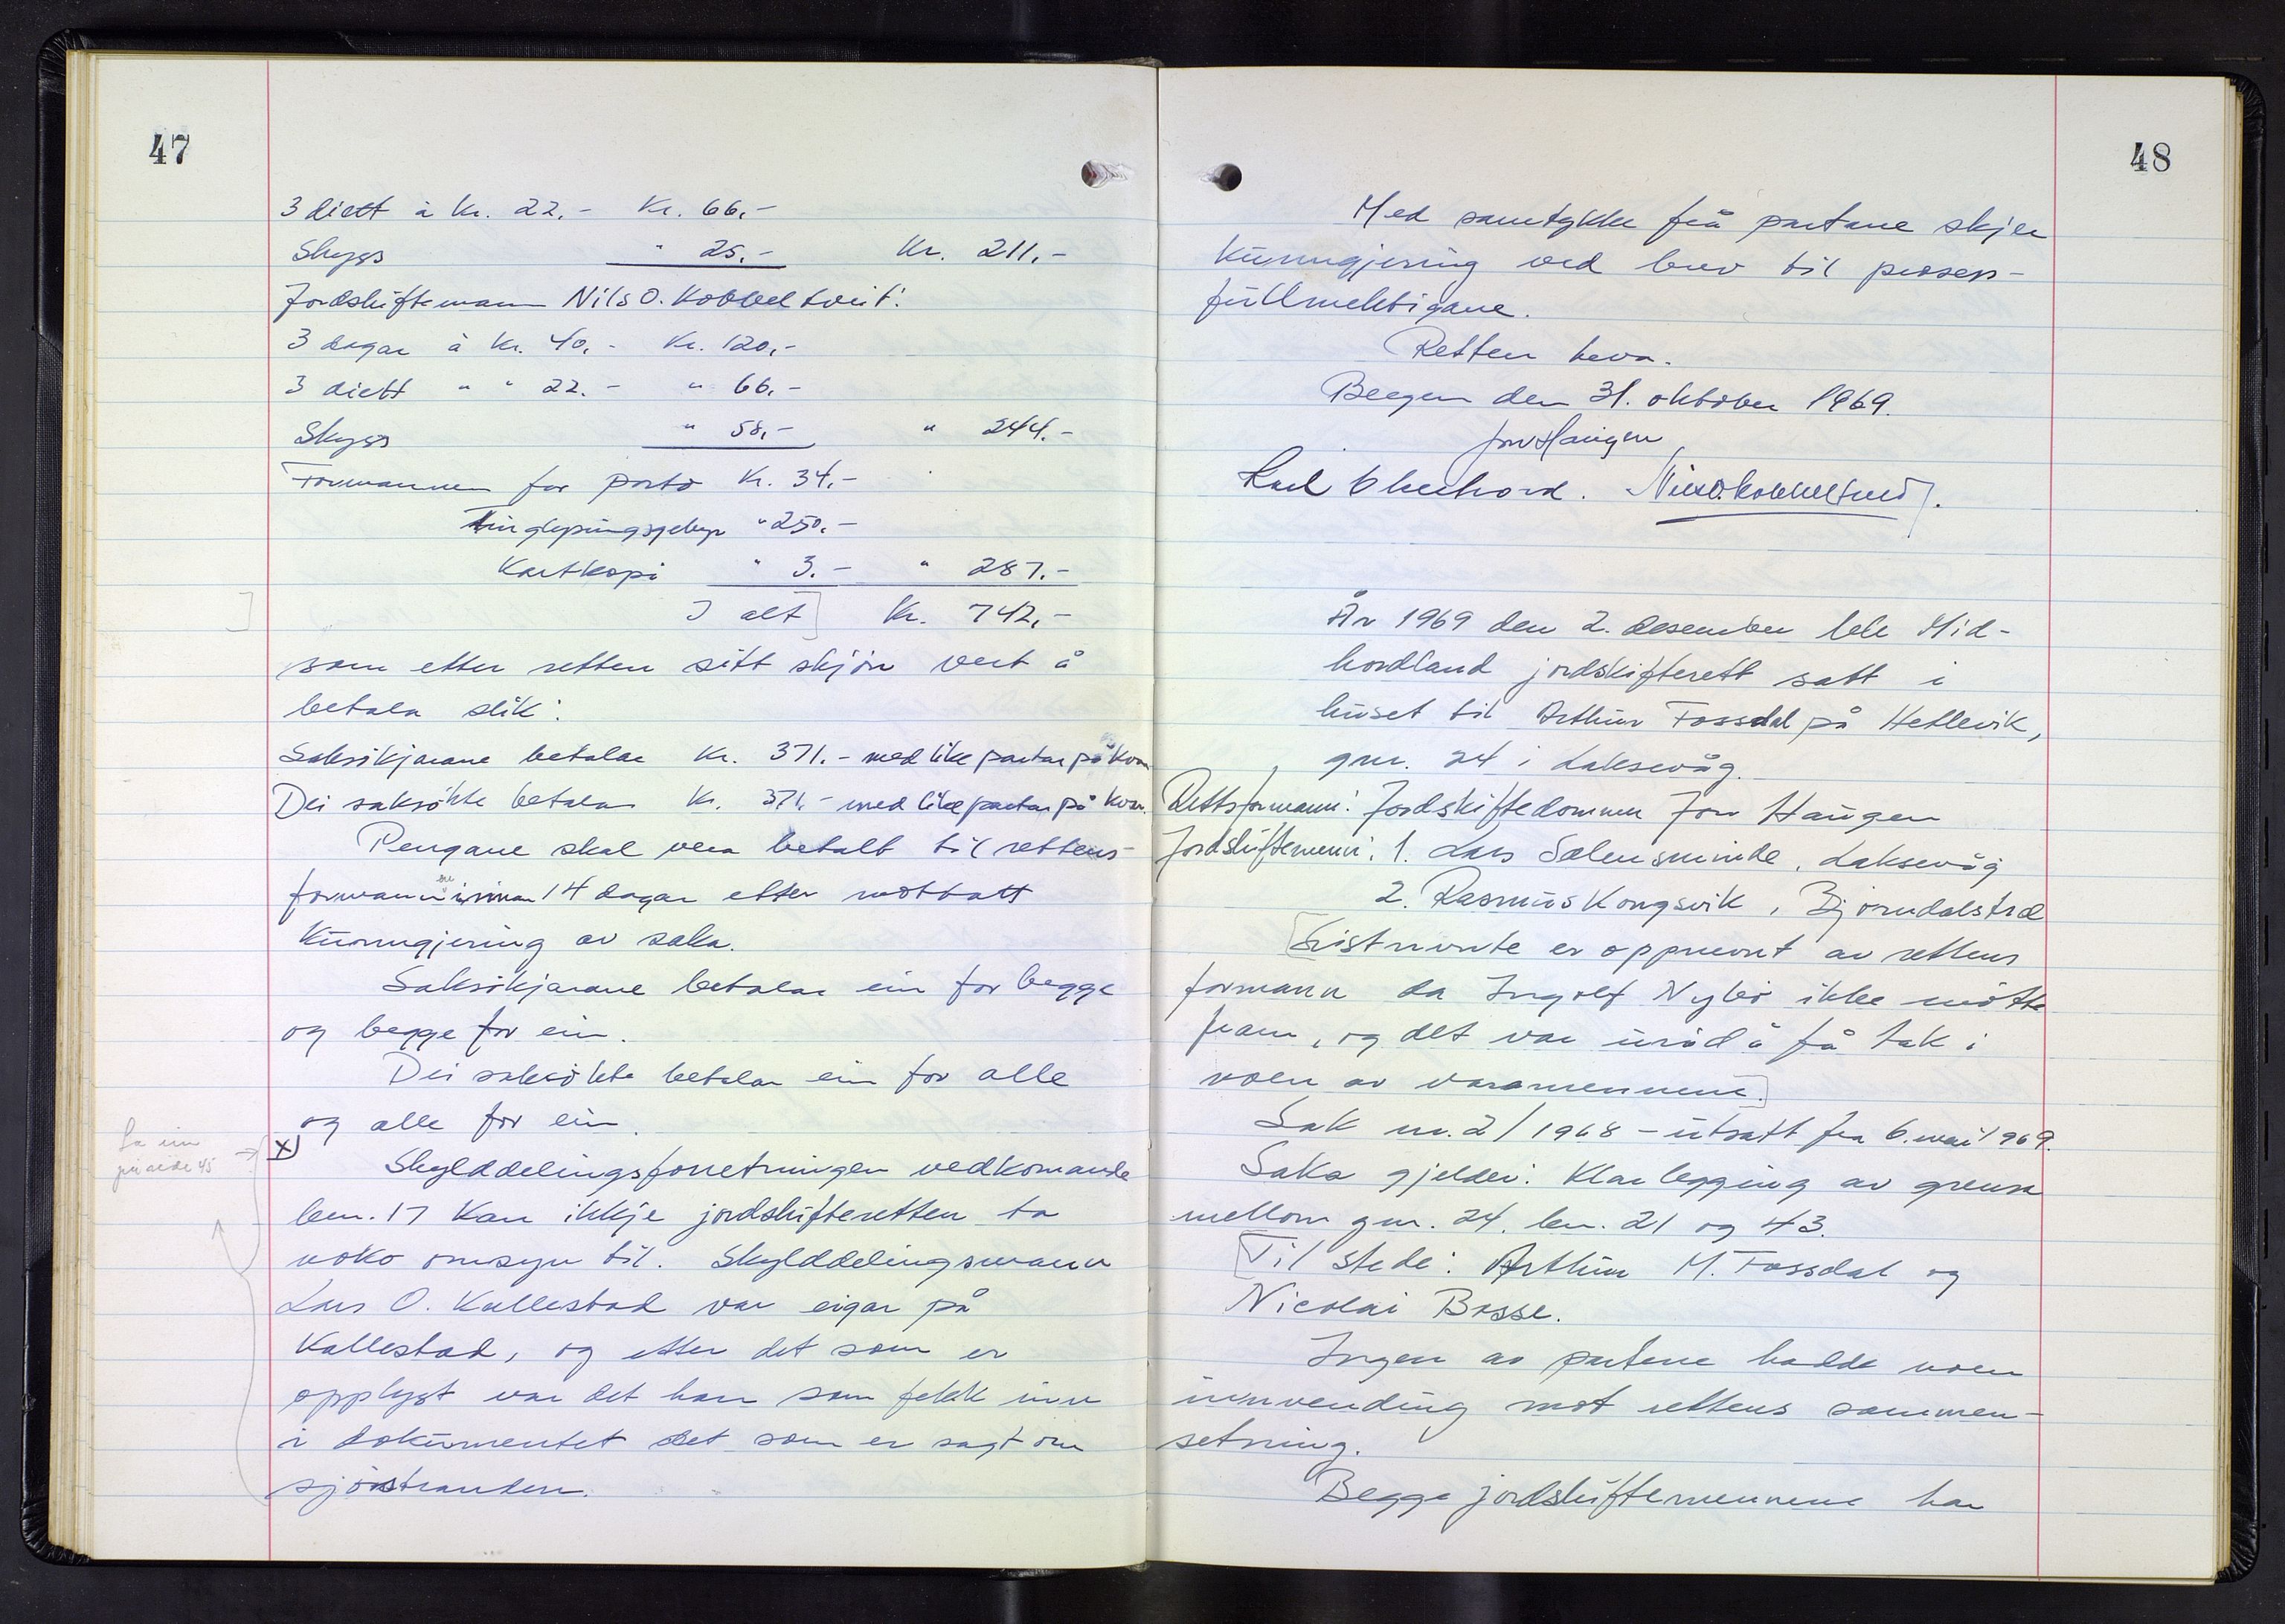 47
3 diett à kr. 22,- Kr. 66,-
Skyss " 25,- Kr. 211,-
Jordskiftemann Nils O. Kobbeltveit:
3 dagar à kr. 40,- Kr. 120,-
3 diett " " 22.- " 66,-
Skyss " 58,- " 244.-
Formannen for porto kr. 34,-
Tinglysingsgebyr " 250,-
Kartkopi " 3.- " 287.-
I alt] Kr. 742,-
som etter retten sitt skjön vert å
betala slik:
Saksökjarane betalar kr. 371.- med like partar på kvar
Dei saksökte betalar kr. 371,- med like partar på kvar.
Pengane skal vera betalt til rettens
formann innan 14 dagar etter mottatt
kunngjering av saka.
Saksökjarane betalar ein for begge
og begge for ein.
Dei saksökte betalar ein for alle
og alle for ein.
Ta inn
på side 45
x)
Skylddelingsforretningen vedkomande
bnr. 17 kan ikkje jordskifteretten ta
noko omsyn til. Skylddelingsmann
Lars O. Kallestad var eigar på
Kallestad, og etter det som er
opplyst var det han som fekk inn
i dokumentet det som er sagt om
sjöstranden.
48
Med samtykke frå partane skjer
kunngjering ved brev til prosess-
fullmektigane.
Retten heva.
Bergen den 31. oktober 1969.
Jon Haugen
Karl Nils O. Kobbeltveit.
År 1969 den 2. desember ble Mid-
hordland jordskifterett satt i
huset til Arthur Fossdal på Hetlevik,
gnr. 24 i Laksevåg.
Rettsformann: Jordskiftedommer Jon Haugen
Jordskiftemenn: 1. Lars Salensminde, Laksevåg
2. Rasmus Kongsvik, Björndalstræ
[Sistnevnte er oppnevnt av rettens
formann da Ingolf Nybö ikke mötte
fram, og det var uråd å få tak i
noen av varamennene.]
Sak nr. 2/1968 - utsatt fra 6. mai 1969.
Saka gjelder: Klarlegging av grensa
mellom gnr. 24, bnr. 21 og 43.
[Til stede: Arthur M. Fossdal og
Nicolai Bosse.
Ingen av partene hadde noen
innvending mot rettens sammen-
setning.
Begge jordskiftemennene har